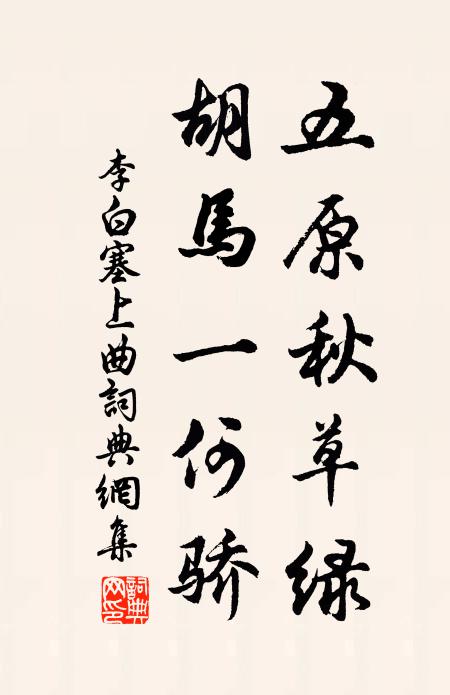 五原秋草绿
胡馬一何骄
李白塞上曲詞典網集
詞典網印